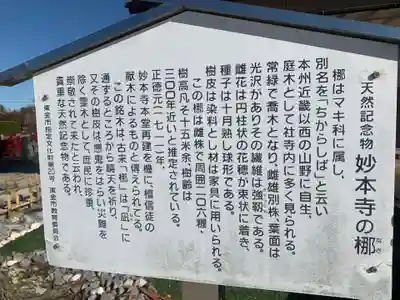 天然記念物 妙本寺の梛
なぎ
梛はマキ科に属し、
別名を「ちからしば」と云い
本州近畿以西の山野に自生、
庭木として社寺内に多く見られる。
常緑で喬木となり、雌雄別株、葉面は
光沢がありその繊維は強靱である。
雌花は円柱状の花穂が束状に着き、
種子は十月熟し球形である。
樹皮は染料とし材は家具に用いられる。
この梛は雌株で周囲二〇六糎、
樹高凡そ十五米余、樹齢は
三〇〇年近いと推定されている。
正徳元(一七一一)年、
妙本寺本堂再建を機に、檀信徒の
献木によるものと伝えられてる。
この銘木は、古来、梛は「凪」に
通ずるところから晴天を祈り、
又その樹皮は、悪鬼をはらい災難を
除く霊木として、庶民に珍重、
崇敬されて来たと云われ、
貴重な天然記念物である。
東金市指定文化財第20号 東金市教育委員会